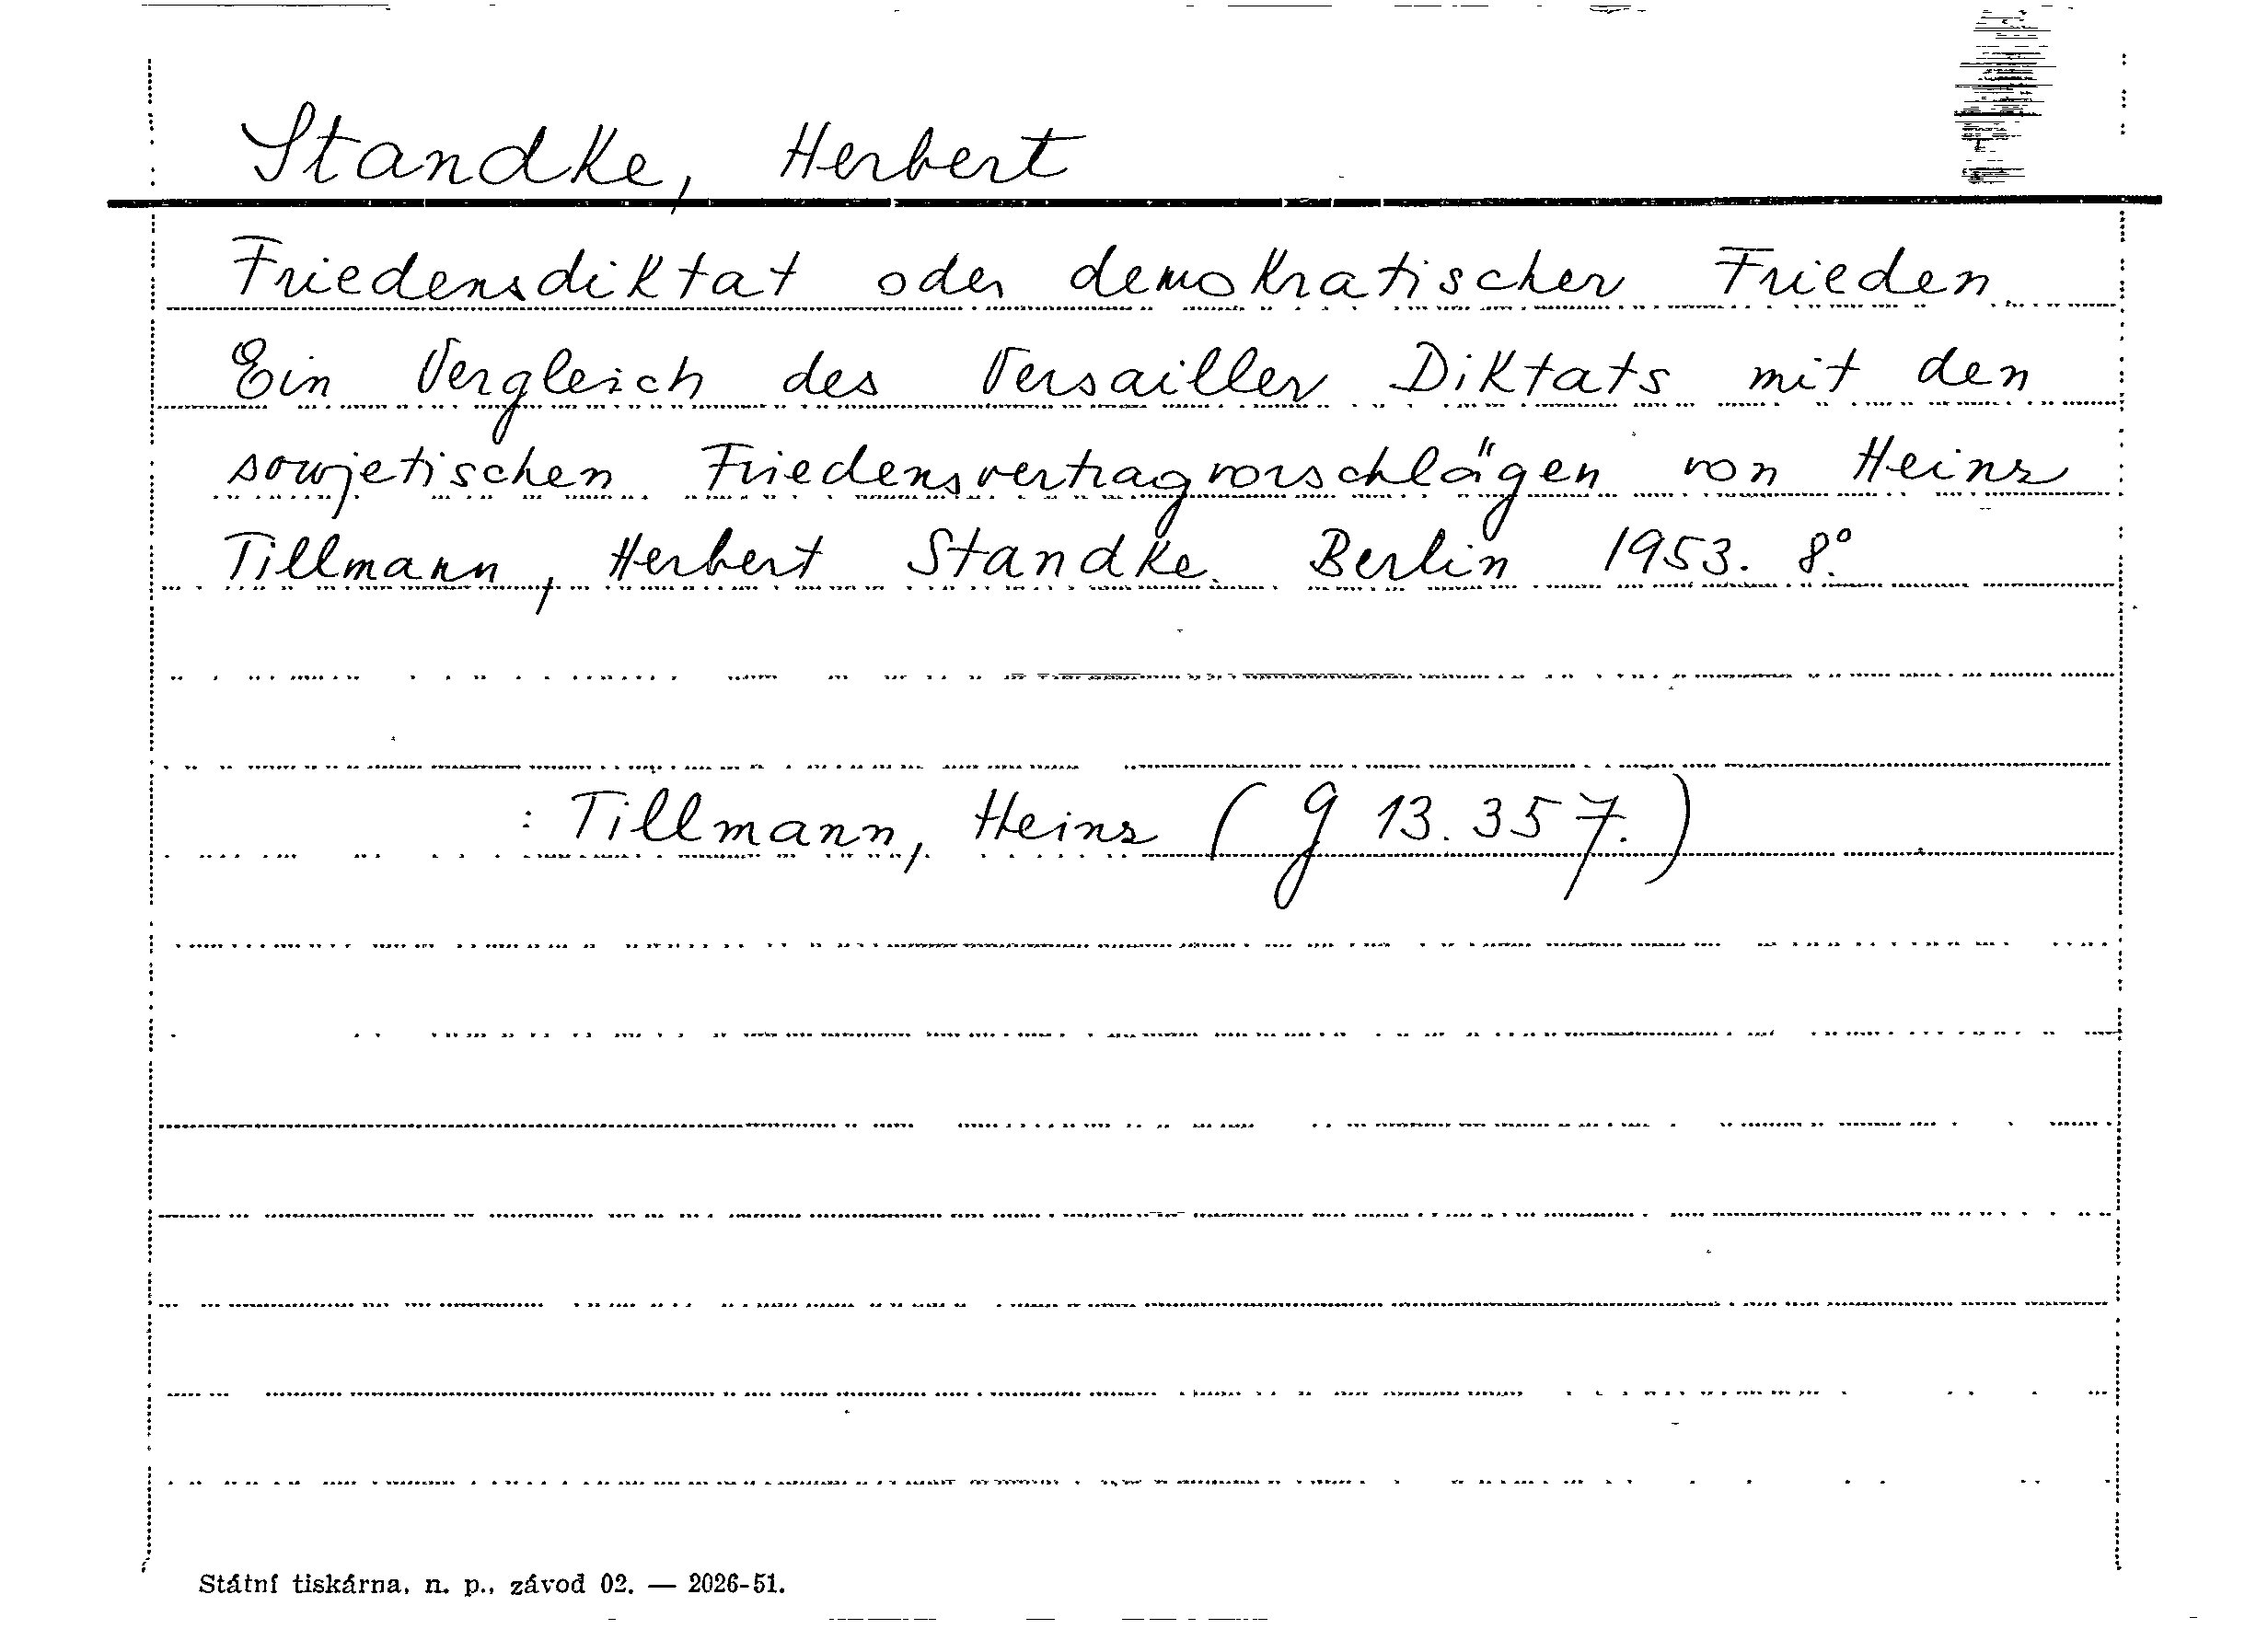 Standke, Herbert
Friedensdiktat oder demokratischer Frieden.
Ein Vergleich des Versailler Diktats mit den
sowjetischen Friedensvertragvorschlägen von Heinz
Tillmann, Herbert Standke. Berlin 1953. 8°.
: Tillmann, Heinz (g 13.357.)
Státní tiskárna, n. p., závod 02. — 2026-51.